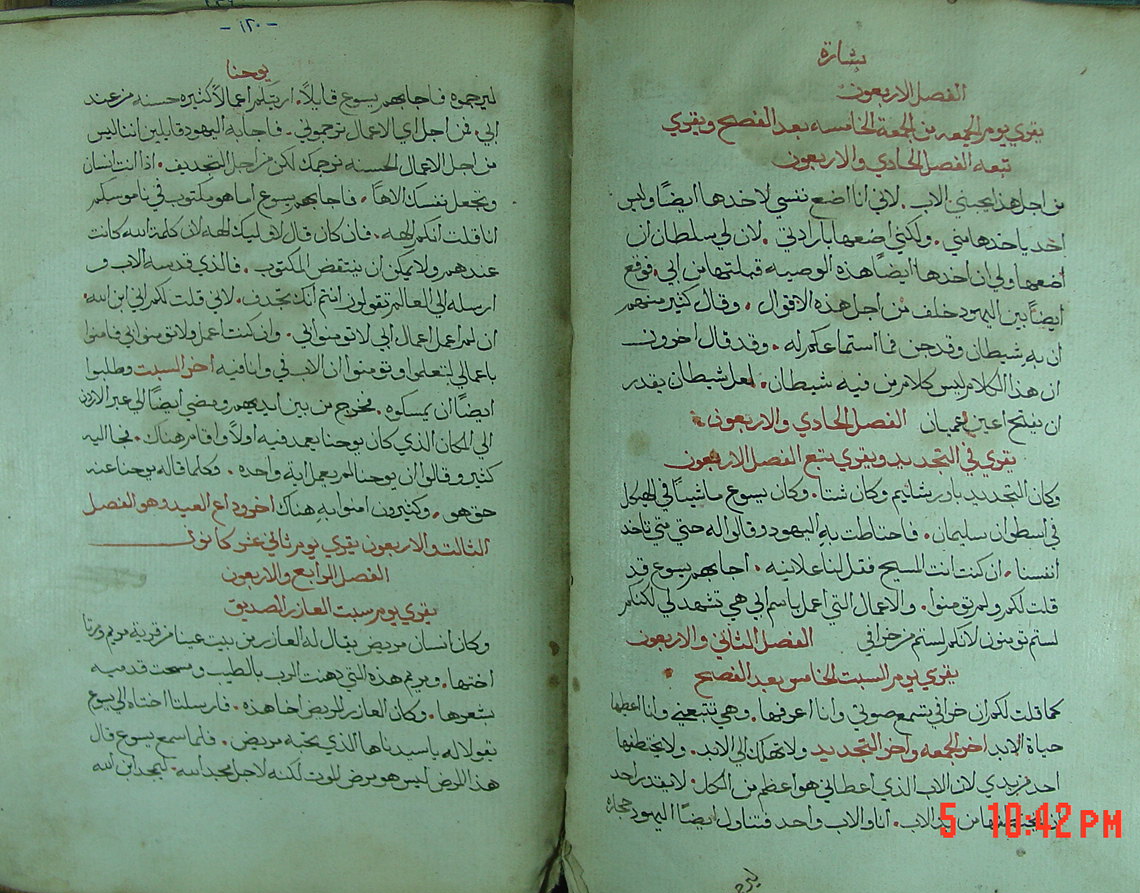 بشارة
الفصل الاربعون
يقري يوم الجمعه من الجمعة الخامسه بعد الفصح ويقري
تبعه الفصل الحادي والاربعون
من اجل هذا يحبني الاب. لاني انا اضع نفسي لاخدها ايضًا وليس
احد ياخدها مني. ولكني اضعها بارادتي. لان لي سلطان ان
اضعها ولي ان اخدها ايضًا هذه الوصيه قبلتها من ابي. فوقع
ايضًا بين اليهود خلف من اجل هذه الاقوال. وقال كثير منهم
ان به شيطان وقد جن فما استماعكم له. وقد قال اخرون
ان هذا الكلام ليس كلام من فيه شيطان. لعل شيطان يقدر
ان يفتح اعين عميان الفصل الحادي والاربعون.
يقري في التجديد ويقري يتبع الفصل الاربعون
وكان التجديد باورشاليم وكان شتا. وكان يسوع ماشيًا في الهيكل
في اسطوان سليمان. فاحتاطت به اليهود وقالوا له حتي متي تاخد
انفسنا. ان كنت انت المسيح فقل لنا علانيه. اجابهم يسوع قد
قلت لكم ولم تومنوا. والاعمال التي اعمل باسم ابي هي تشهد لي لكنكم
لستم تومنون لانكم لستم من خرافي الفصل الثاني والاربعون
يقري يوم السبت الخامس بعد الفصح
كما قلت لكم ان خرافي تسمع صوتي وانا اعرفها. وهي تتبعني وانا اعطيها
حياة الابد اخر الجمعه واخر التجديد ولا تهلك الي الابد. ولا يختطفها
احد من يدي لان الاب الذي اعطاني هو اعظم من الكل. لا يقدر احد
ان يختطفها من يد الاب. انا والاب واحد فتناول ايضًا اليهود حجاره
ليرجموه
5 10:42 PM
-١٢٠-
يوحنا
ليرجموه فاجابهم يسوع قايلاً. اريتكم اعمالاً كثيره حسنه من عند
ابي. فمن اجل اي الاعمال ترجموني. فاجابه اليهود قايلين اننا ليس
من اجل الاعمال الحسنه نرجمك لكن من اجل التجديف. اذ انت انسان
وتجعل نفسك الاهًا. فاجابهم يسوع اما هو مكتوب في ناموسكم
انا قلت انكم الهه. فان كان قال لاوليك الهه لان كلمة الله كانت
عندهم ولا يمكن ان ينتقض المكتوب. فالذي قدسه الاب و
ارسله الي العالم تقولون انتم انك تجدف. لاني قلت لكم اني ابن الله.
ان لم اعمل اعمال ابي لا تومنوا بي. وان كنت اعمل ولا تومنوا بي فامنوا
باعمالي لتعلموا وتومنوا ان الاب في وانا فيه اخر السبت وطلبوا
ايضًا ان يمسكوه. فخرج من بين ايديهم ومضي ايضًا الي عبر الاردن
الي المكان الذي كان يوحنا يعمد فيه اولاً واقام هناك. فجا اليه
كثير وقالوا ان يوحنا لم يعمل اية واحده. فكلما قاله يوحنا عنه
حق هو. وكثيرون امنوا به هناك اخر وداع العيد وهو الفصل
الثالث والاربعون يقري يوم ثاني عشر كانون
الفصل الرابع والاربعون
يقري يوم سبت العازر الصديق
وكان انسان مريض يقال له العازر من بيت عنيا من قرية مريم ومرتا
اختها. ومريم هذه التي دهنت الرب بالطيب ومسحت قدميه
بشعرها. وكان العازر المريض اخا هذه. فارسلتا اختاه الي يسوع
تقولا له يا سيد ها هوذا الذي تحبه مريض. فلما سمع يسوع قال
هذا المرض ليس هو مرض الموت لكنه لاجل مجد الله. ليمجد ابن الله